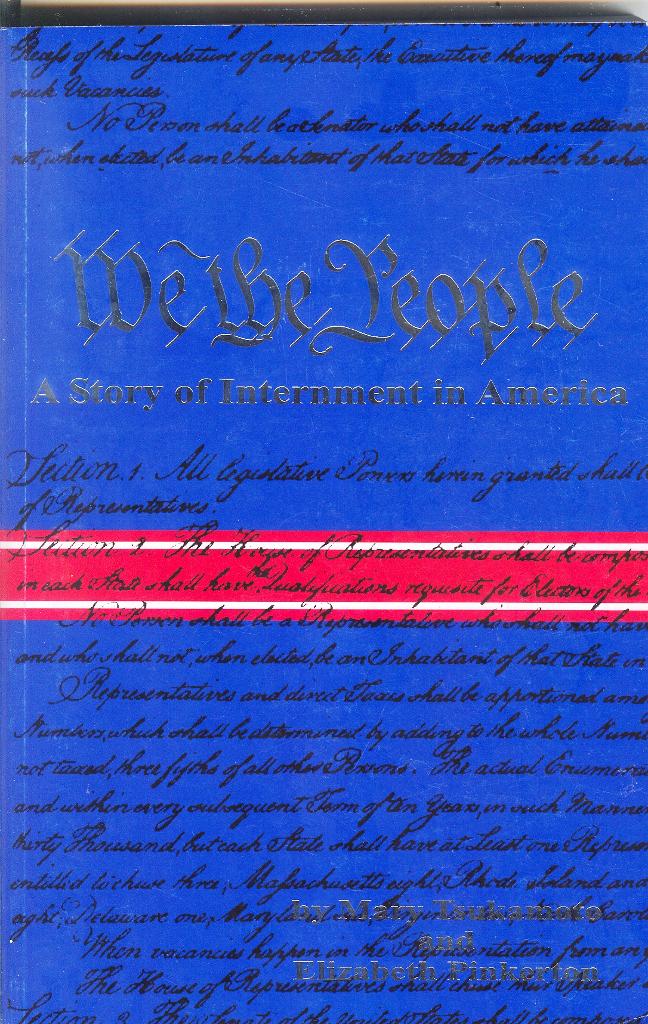 Recess of the Legislature of any State, the Executive thereof may make
such Vacancies.
No Person shall be a Senator who shall not have attained
not, when elected, be an Inhabitant of that State for which he shall
We the People
A Story of Internment in America
Section. 1. All legislative Powers herein granted shall
of Representatives.
Section. 2. The House of Representatives shall be compos
in each State shall have the Qualifications requisite for Electors of the
No Person shall be a Representative who shall not have
and who shall not, when elected, be an Inhabitant of that State in
Representatives and direct Taxes shall be apportioned amo
Numbers, which shall be determined by adding to the whole Num
not taxed, three fifths of all other Persons. The actual Enumera
and within every subsequent Term of ten Years, in such Manner
thirty Thousand, but each State shall have at Least one Represen
entitled to chuse three, Massachusetts eight, Rhode Island and
eight, Delaware one, Maryland
by Mary Tsukamoto
When vacancies happen in the Representation from any
and
The House of Representatives shall chuse their Speaker
Elizabeth Pinkerton
Section. 3. The Senate of the United States shall be composed